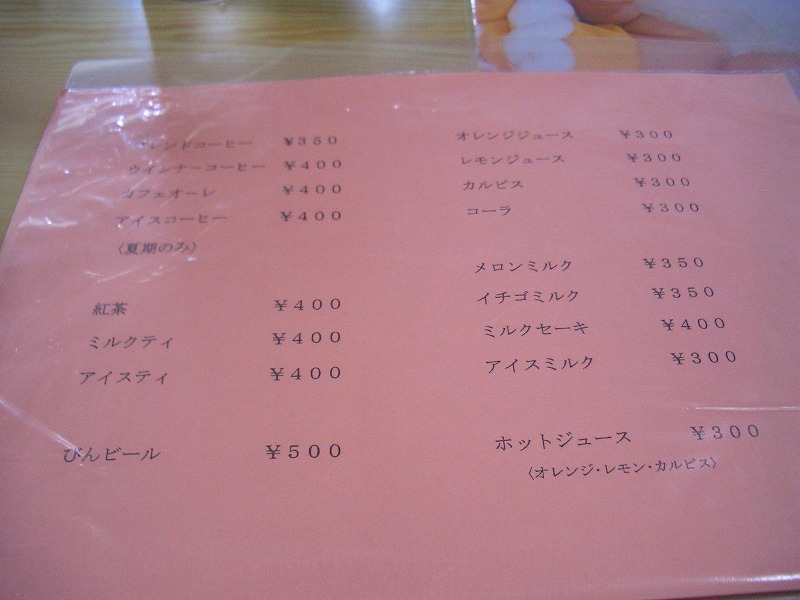 ブレンドコーヒー ￥350
ウインナーコーヒー ￥400
カフェオーレ ￥400
アイスコーヒー ￥400
〈夏期のみ〉
紅茶 ￥400
ミルクティ ￥400
アイスティ ￥400
びんビール ￥500
オレンジジュース ￥300
レモンジュース ￥300
カルピス ￥300
コーラ ￥300
メロンミルク ￥350
イチゴミルク ￥350
ミルクセーキ ￥400
アイスミルク ￥300
ホットジュース ￥300
〈オレンジ・レモン・カルピス〉